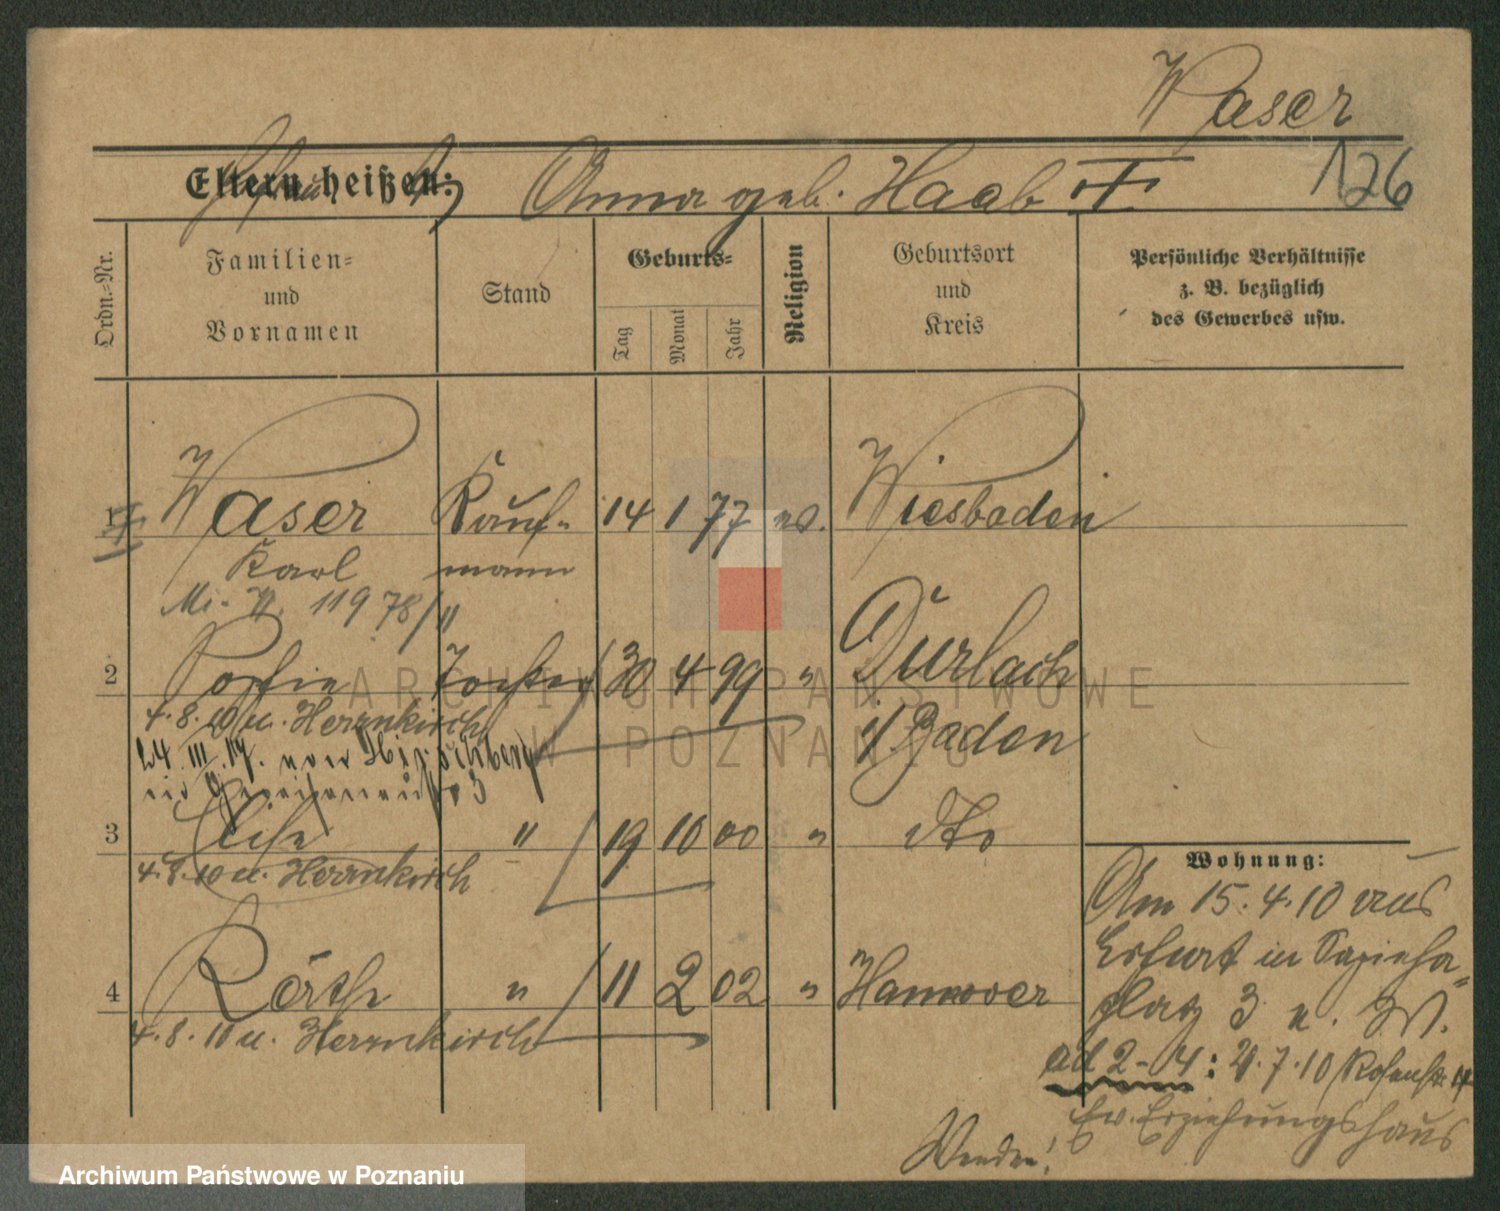 Waser
126
Eltern heißen:
Anna geb. Haab †
Ordn.-Nr.
Familien-
und
Vornamen
Stand
Geburts-
Tag
Monat
Jahr
Religion
Geburtsort
und
Kreis
Persönliche Verhältnisse
z. B. bezüglich
des Gewerbes usw.
1 Waser Kauf- 14 1 77 ev. Wiesbaden
Karl mann
119 78/11
2 Sophie Tochter 30 4 99 " Durlach
4.8.10 u. Herrnkirch
i/Baden
24. III. 17. von Hirschberg
in
3 Else " 19 10 00 " dto
4.8.10 u. Herrnkirch
4 Käthe " 11 2 02 " Hannover
4.8.10 u. Herrnkirch
Wohnung:
Am 15.4.10 aus
Erfurt in Sapieha-
platz 3 u. W.
ad 2-4: 21.7.10
Ev. Erziehungshaus
Wenden!
ARCHIWUM PAŃSTWOWE
W POZNANIU
Archiwum Państwowe w Poznaniu